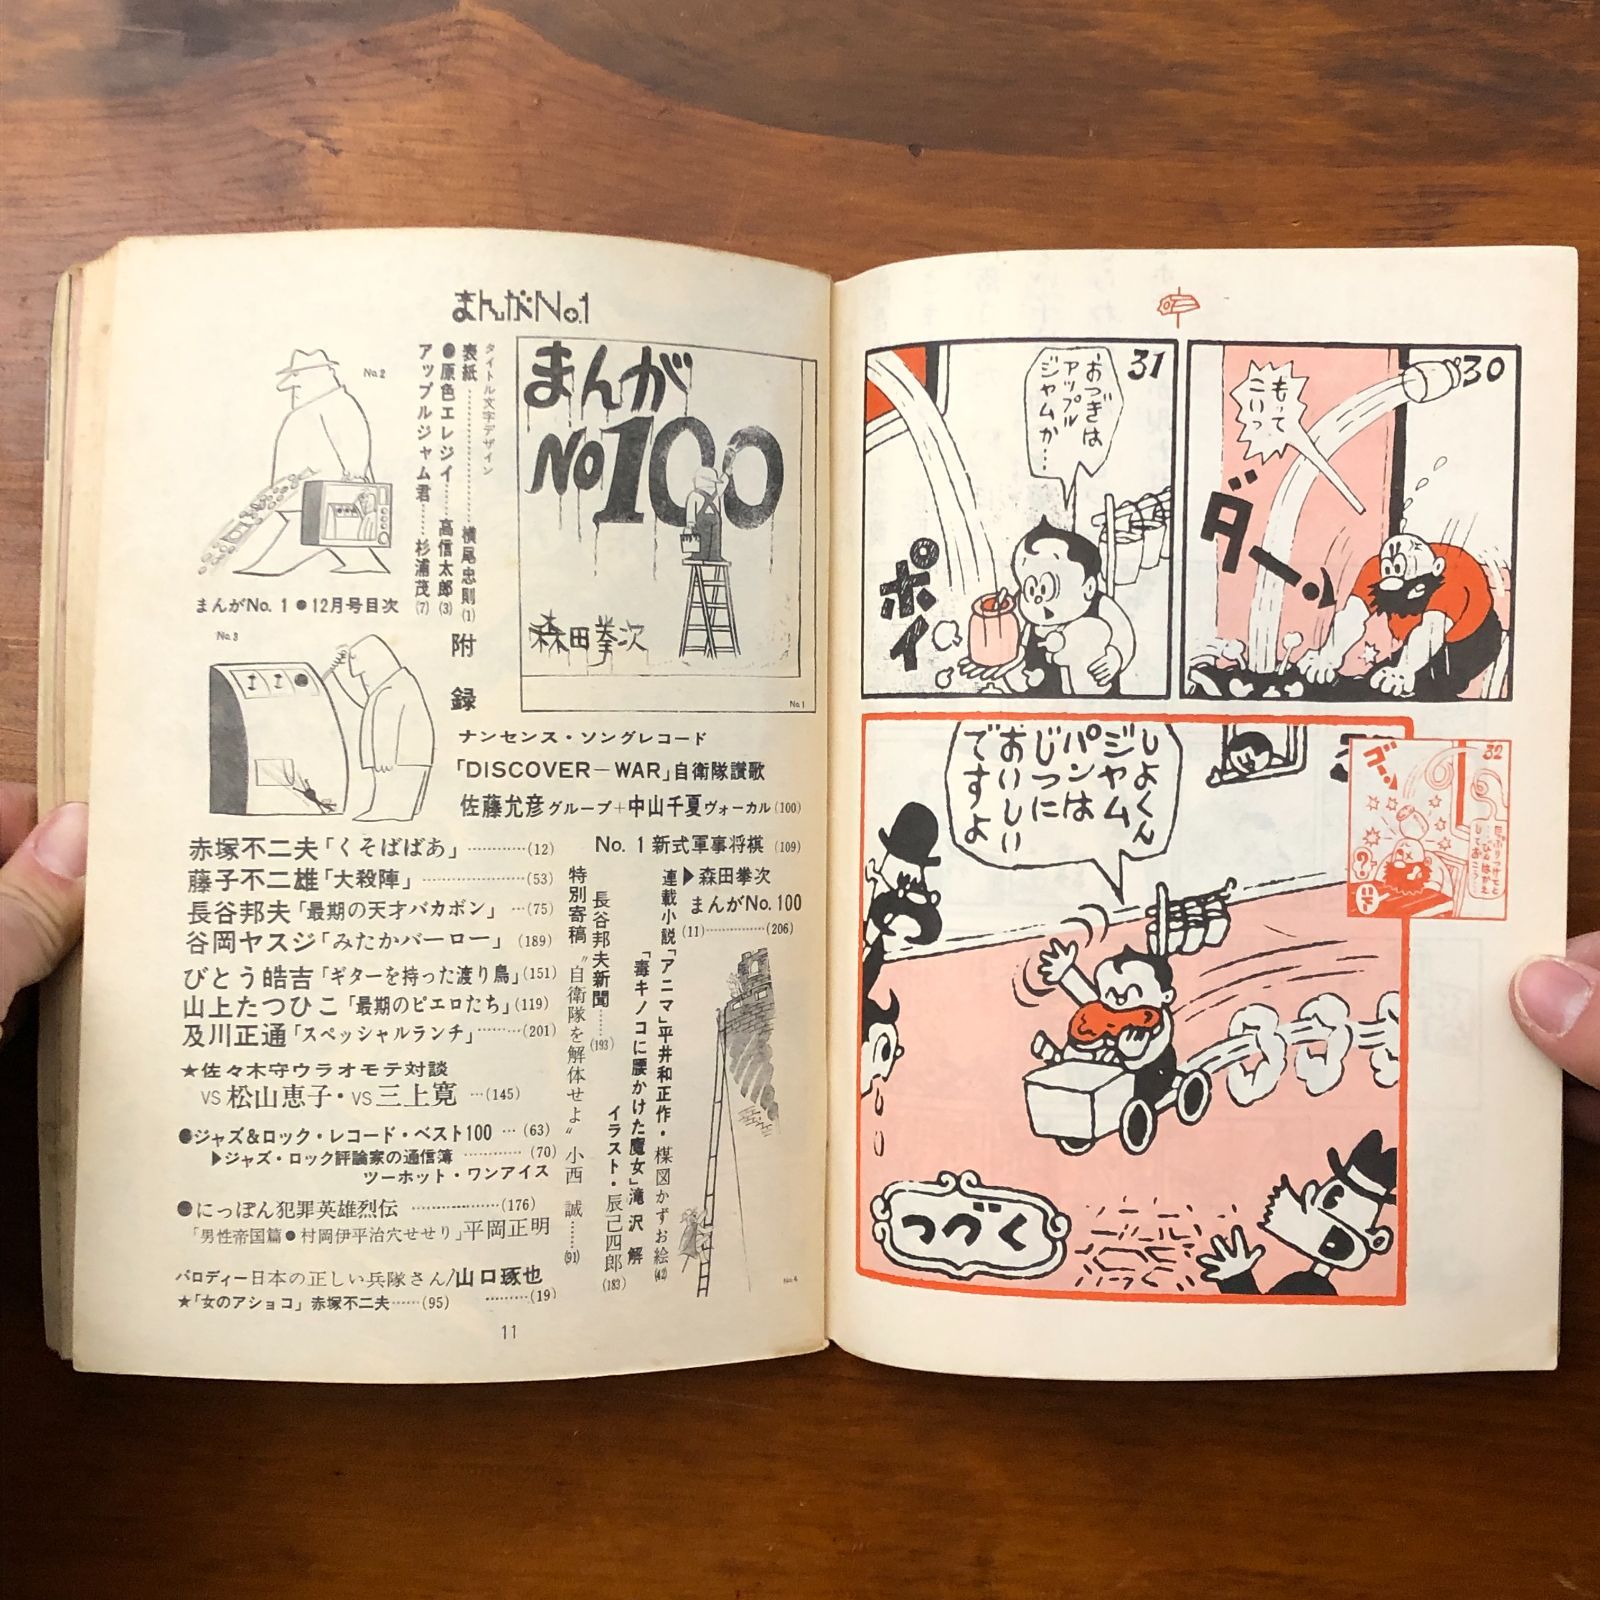 まんがNo.1
タイトル文字デザイン
表紙…………横尾忠則(1)
●原色エレジイ……高信太郎(3)
アップルジャム君……杉浦茂(7)
No.2
まんがNo.1●12月号目次
No.3
まんが
No100
森田拳次
No.1
附録
ナンセンス・ソングレコード
「DISCOVER−WAR」自衛隊讃歌
佐藤允彦グループ+中山千夏ヴォーカル(100)
No. 1 新式軍事将棋 (109)
▶森田拳次
まんがNo.100
(11)……………(206)
赤塚不二夫「くそばばあ」…………(12)
藤子不二雄「大殺陣」…………………(53)
長谷邦夫「最期の天才バカボン」…(75)
谷岡ヤスジ「みたかバーロー」(189)
びとう皓吉「ギターを持った渡り鳥」(151)
山上たつひこ「最期のピエロたち」(119)
及川正通「スペッシャルランチ」………(201)
★佐々木守ウラオモテ対談
VS 松山恵子・VS 三上寛…(145)
●ジャズ&ロック・レコード・ベスト100…(63)
▶ジャズ・ロック評論家の通信簿……………(70)
ツーホット・ワンアイス
●にっぽん犯罪英雄烈伝………………(176)
「男性帝国篇●村岡伊平治穴せせり」平岡正明
パロディー日本の正しい兵隊さん/山口琢也
………(19)
★「女のアショコ」赤塚不二夫……(95)
連載小説「アニマ」平井和正作・楳図かずお絵(42)
「毒キノコに腰かけた魔女」滝沢解
イラスト・辰己四郎(183)
長谷邦夫新聞……(193)
特別寄稿"自衛隊を解体せよ"小西誠……(91)
No.4
11
30
もって
こいっ
ダーン
31
おつぎは
アップル
ジャムか…
ポイ
32
ゴーン
しよくん
ジャム
パンは
じつに
おいしい
ですよ
つづく